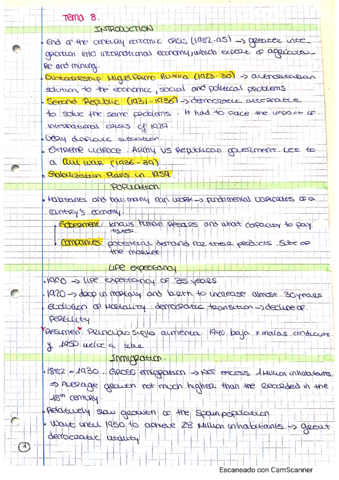 Tema 8.
INTRODUCTION
• End of the century economic crisis (1882-95) → greater inte
gration into international economy, which export of agricultu-
re and mining.
• Dictatorship Miguel Primo Rivera (1923-30) → authoritarian
solution to the economic, social and political problems
• Second Republic (1931-1936) → democratic alternative
to solve the same problems. It had to face the impact of
international crisis of 1929.
• Very dramatic situation.
• Extreme violence. Army VS Republican government. Led to
a Civil War (1936-39)
• Stabilization Plans in 1959
POPULATION
• Habitants and how many can work → fundamental variables of a
country's economy.
Goberment: knows human resources and what capacity to pay
taxes.
Companies: potential demand for these products. Size of
the market
LIFE expectancy
• 1900 → life expectancy of 35 years
• 1920 → drop in mortality and birth to increase almost 30 years
• Evolution of mortality democratic transition → decline of
fertility.
• Resumen: Principio siglo aumenta 1940 baja x malas condiciones
y 1950 vuelve a subir
Inmigration.
• 1882 - 1930. Gross emigration → not excess 1 Million inhabitants.
⇒ Average growth not much higher than the recorded in the
18th century.
• Relatively slow growth of the Spain population
• Wait until 1950 to achieve 28 Million inhabitants → great
democratic vitality
1
Escaneado con CamScanner